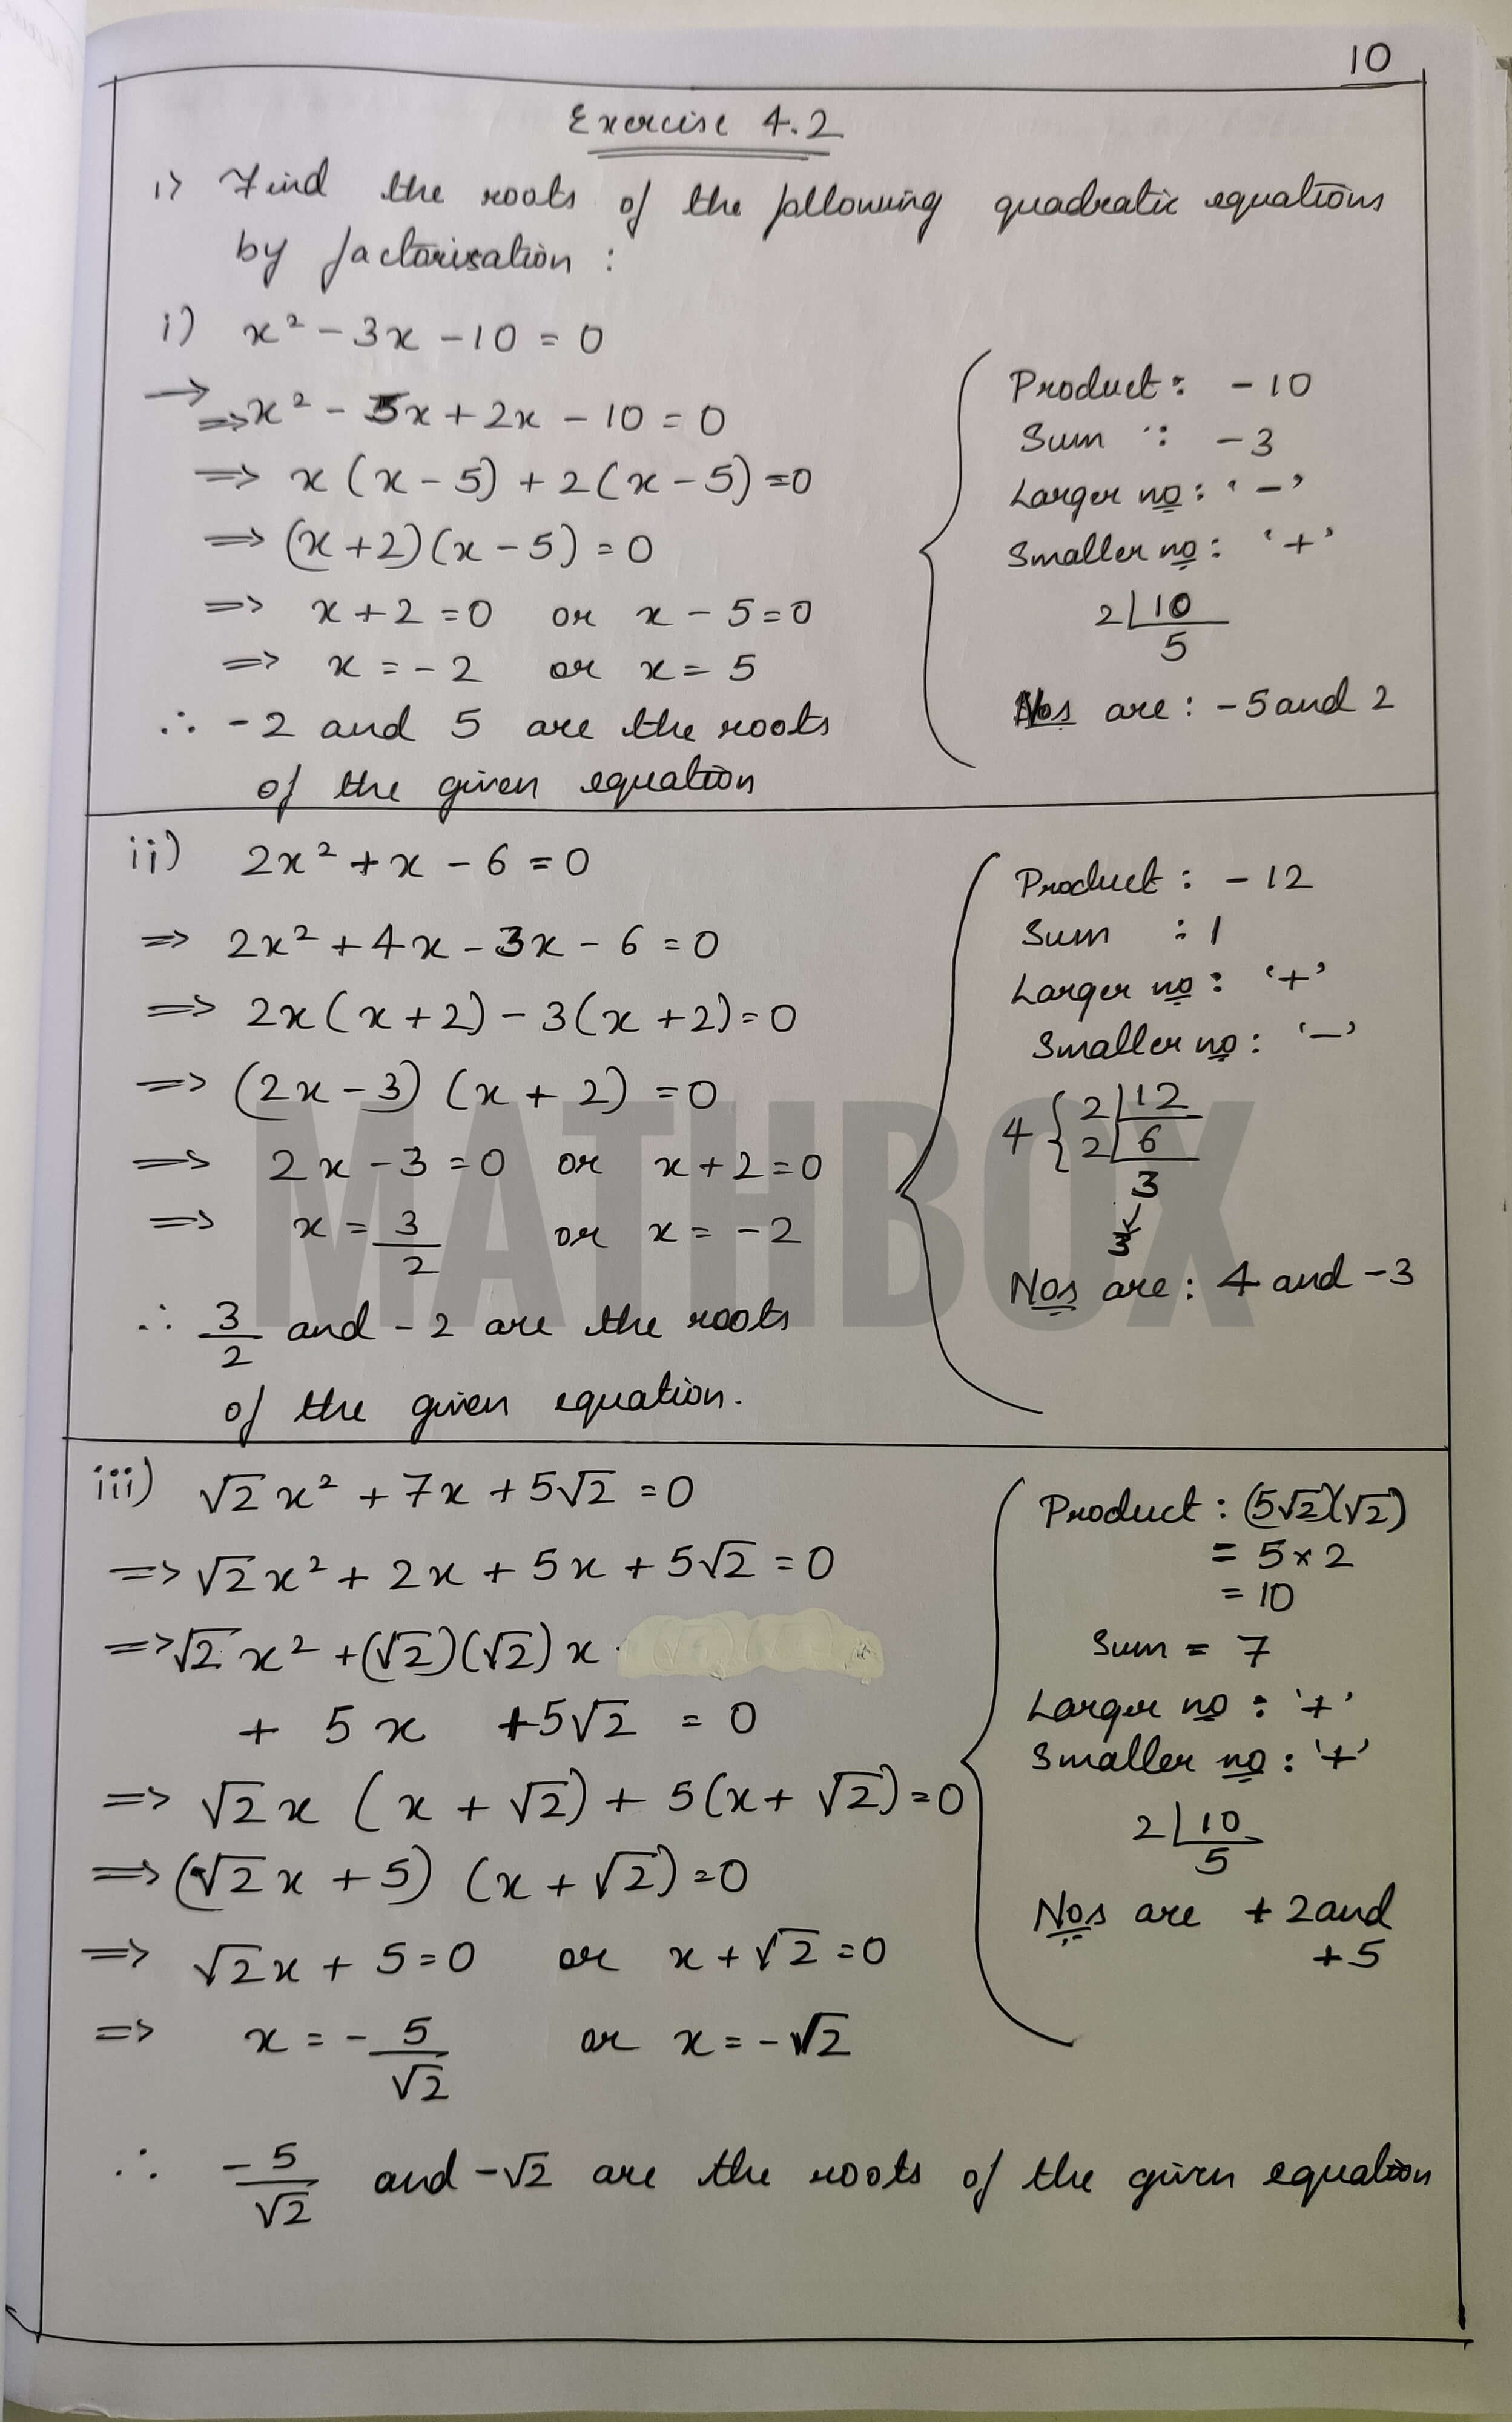 10
Exercise 4.2
1) Find the roots of the following quadratic equations
by factorisation :
i) x² - 3x - 10 = 0
→ => x² - 5x + 2x - 10 = 0
=> x (x - 5) + 2 (x - 5) = 0
=> (x + 2) (x - 5) = 0
=> x + 2 = 0 or x - 5 = 0
=> x = - 2 or x = 5
∴ -2 and 5 are the roots
of the given equation
Product : - 10
Sum : - 3
Larger no : ' - '
Smaller no : ' + '
2 | 10
5
Nos are : - 5 and 2
ii) 2x² + x - 6 = 0
=> 2x² + 4x - 3x - 6 = 0
=> 2x (x + 2) - 3 (x + 2) = 0
=> (2x - 3) (x + 2) = 0
=> 2x - 3 = 0 or x + 2 = 0
=> x = 3/2 or x = - 2
∴ 3/2 and - 2 are the roots
of the given equation.
Product : - 12
Sum : 1
Larger no : ' + '
Smaller no : ' - '
4 { 2 | 12
2 | 6
3
3
Nos are : 4 and - 3
MATHBOX
iii) √2 x² + 7x + 5√2 = 0
=> √2 x² + 2x + 5x + 5√2 = 0
=> √2 x² + (√2) (√2) x
+ 5x + 5√2 = 0
=> √2 x (x + √2) + 5 (x + √2) = 0
=> (√2 x + 5) (x + √2) = 0
=> √2 x + 5 = 0 or x + √2 = 0
=> x = - 5/√2 or x = - √2
∴ - 5/√2 and - √2 are the roots of the given equation
Product : (5√2)(√2)
= 5 × 2
= 10
Sum = 7
Larger no : ' + '
Smaller no : ' + '
2 | 10
5
Nos are + 2 and
+ 5